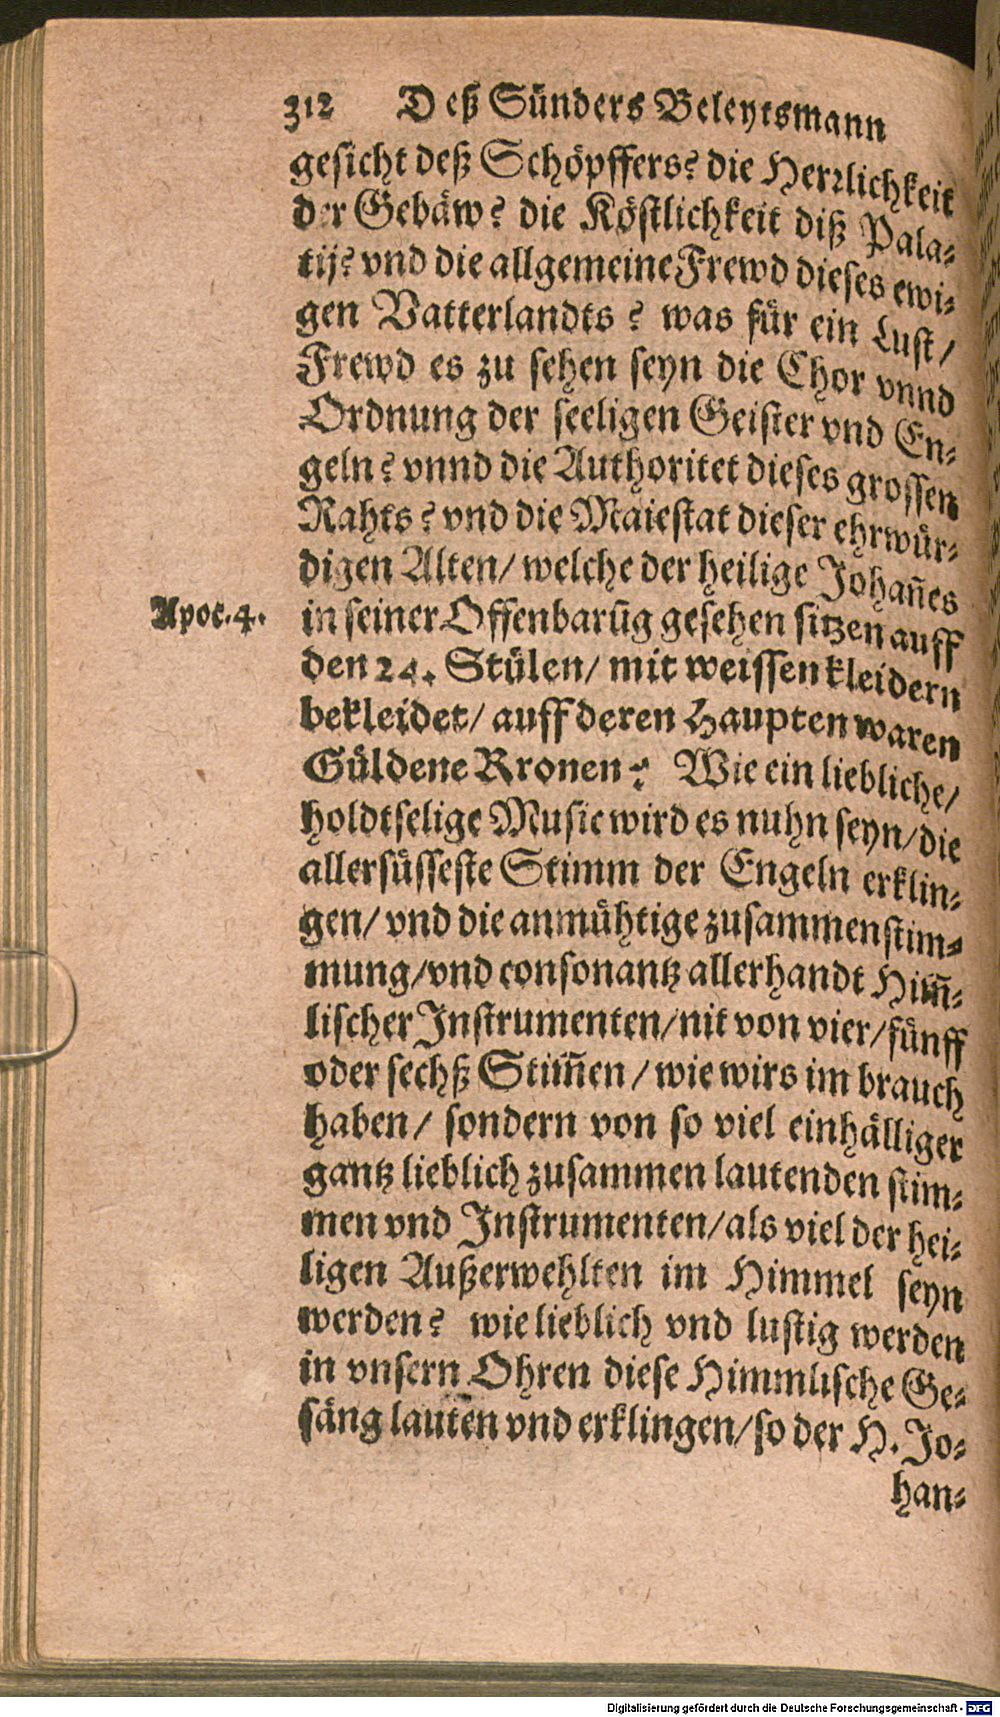 312 Deß Sünders Beleytsmann
gesicht deß Schöpffers? die Herꝛlichkeit
der Gebäw? die Köstlichkeit diß Pala-
tij? vnd die allgemeine Frewd dieses ewi-
gen Vatterlandts? was für ein Lust/
Frewd es zu sehen seyn die Chor vnnd
Ordnung der seeligen Geister vnd En-
geln? vnnd die Authoritet dieses grossen
Rahts? vnd die Maiestat dieser ehrwür-
digen Alten/ welche der heilige Johan̄es
Apoc. 4.
in seiner Offenbarūg gesehen sitzen auff
den 24. Stülen/ mit weissen kleidern
bekleidet/ auff deren Haupten waren
Güldene Kronen? Wie ein liebliche/
holdtselige Music wird es nuhn seyn/ die
allersüsseste Stimm der Engeln erklin-
gen/ vnd die anmühtige zusammenstim-
mung/ vnd consonantz allerhandt Him̄-
lischer Instrumenten/ nit von vier/ fünff
oder sechß Stim̄en/ wie wirs im brauch
haben/ sondern von so viel einhälliger
gantz lieblich zusammen lautenden stim-
men vnd Instrumenten/ als viel der hei-
ligen Außerwehlten im Himmel seyn
werden? wie lieblich vnd lustig werden
in vnsern Ohren diese Himmlische Ge-
säng lauten vnd erklingen/ so der H. Jo-
han-
Digitalisierung gefördert durch die Deutsche Forschungsgemeinschaft - DFG